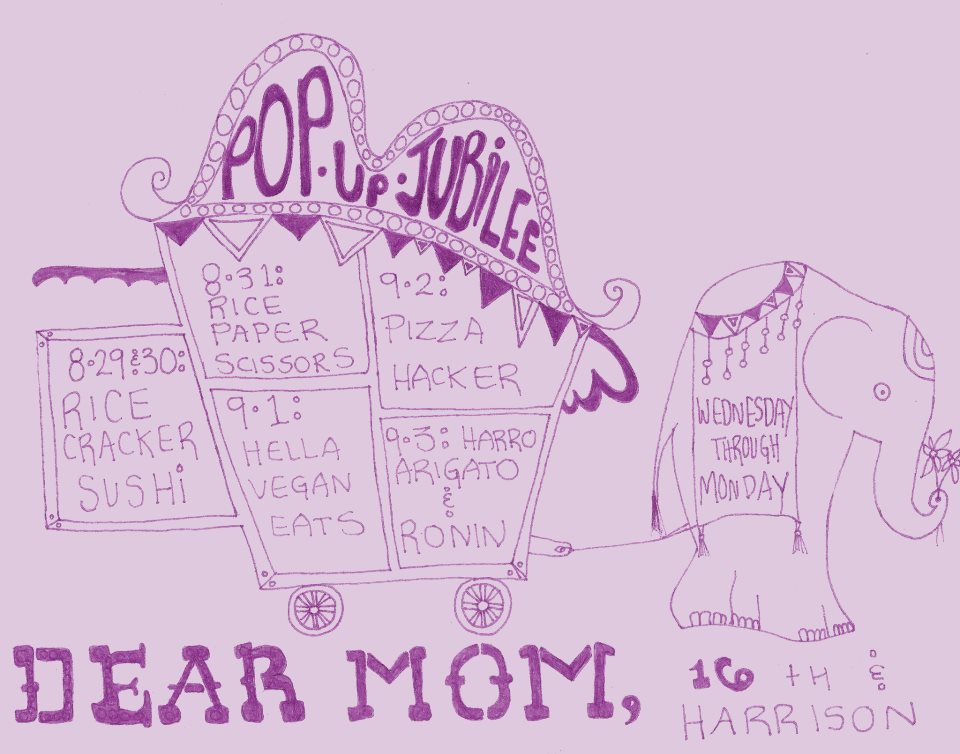 POP-UP-JUBILEE
8·29&30:
RICE
CRACKER
SUSHi
8·31:
RICE
PAPER
SCISSORS
9·1:
HELLA
VEGAN
EATS
9·2:
PIZZA
HACKER
9·3: HARRO
ARIGATO
&
RONIN
WEDNESDAY
THROUGH
MONDAY
DEAR MOM,
16TH &
HARRISON